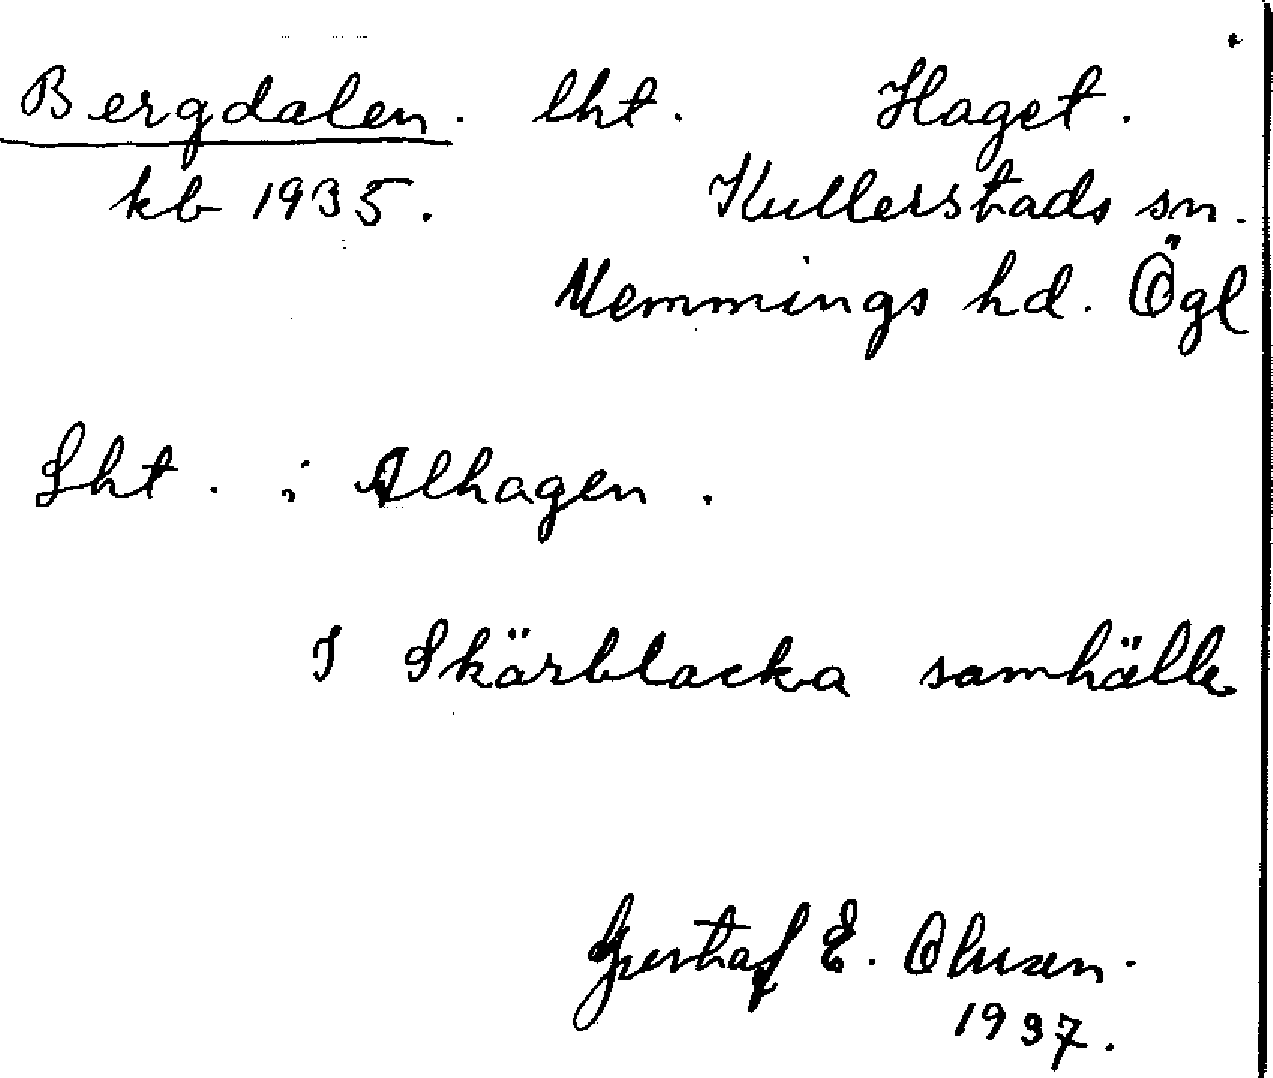 Bergdalen. lht. Haget.
kb 1935. Kullerstads sn.
Memmings hd. Ögl
Lht. i Alhagen.
I Skärblacka samhälle
Gustaf E. Olsson.
1937.